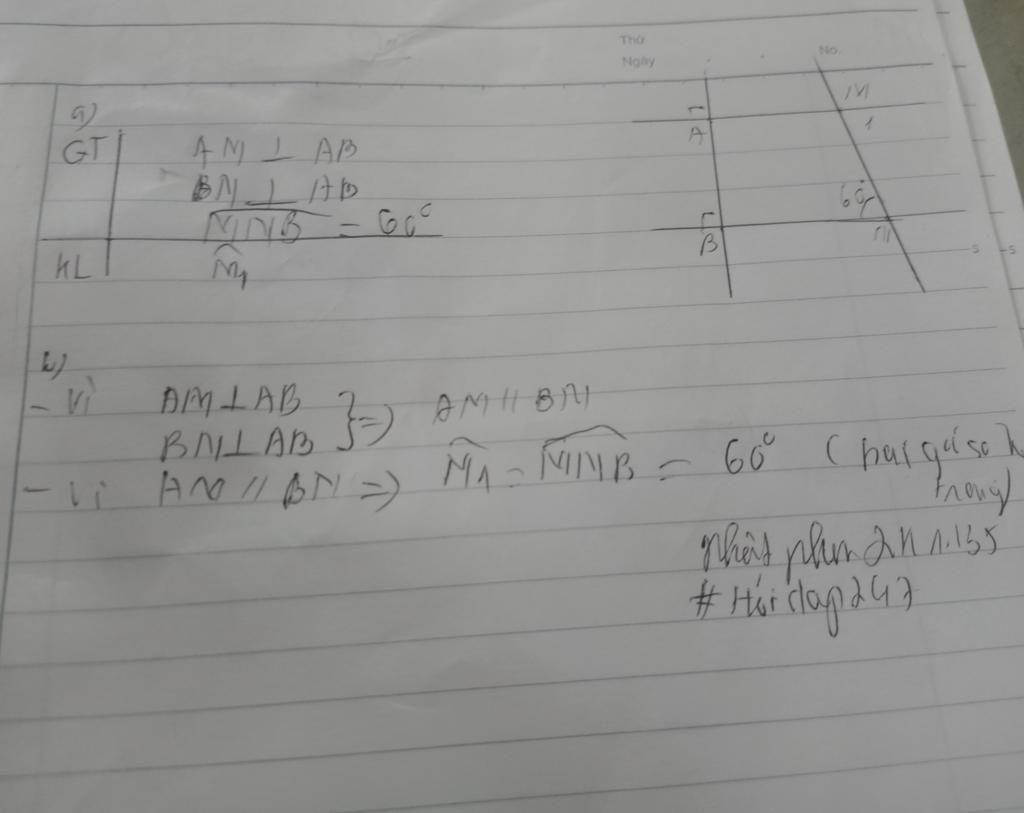 Thứ
Ngày
No.
a)
GT AM ⊥ AB
BN ⊥ AB
MNB = 60°
KL M₁
M
1
A
60°
B
N
b)
- Vì AM ⊥ AB
BN ⊥ AB } => AM // BN
- Vì AM // BN => M₁ = MNB = 60° (hai góc so le
trong)
# Hỏi đáp 247